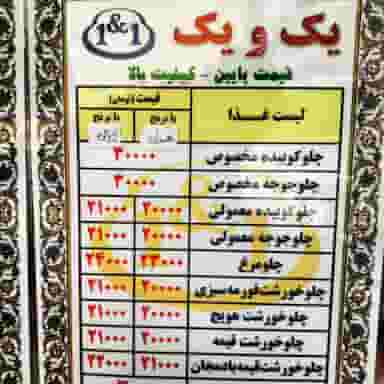 1&1
یک و یک
قیمت پایین - کیفیت بالا
لیست غذا
قیمت (تومان)
با برنج
با برنج
چلوکوبیده مخصوص ۳۰۰۰۰
چلوجوجه مخصوص ۳۰۰۰۰
چلوکوبیده معمولی ۲۰۰۰۰ ۲۱۰۰۰
چلوجوجه معمولی ۲۰۰۰۰ ۲۱۰۰۰
چلومرغ ۲۳۰۰۰ ۲۴۰۰۰
چلوخورشت قورمه سبزی ۲۰۰۰۰ ۲۱۰۰۰
چلوخورشت هویج ۲۰۰۰۰ ۲۱۰۰۰
چلوخورشت قیمه ۲۰۰۰۰ ۲۱۰۰۰
چلوخورشت قیمه بادمجان ۲۱۰۰۰ ۲۲۰۰۰